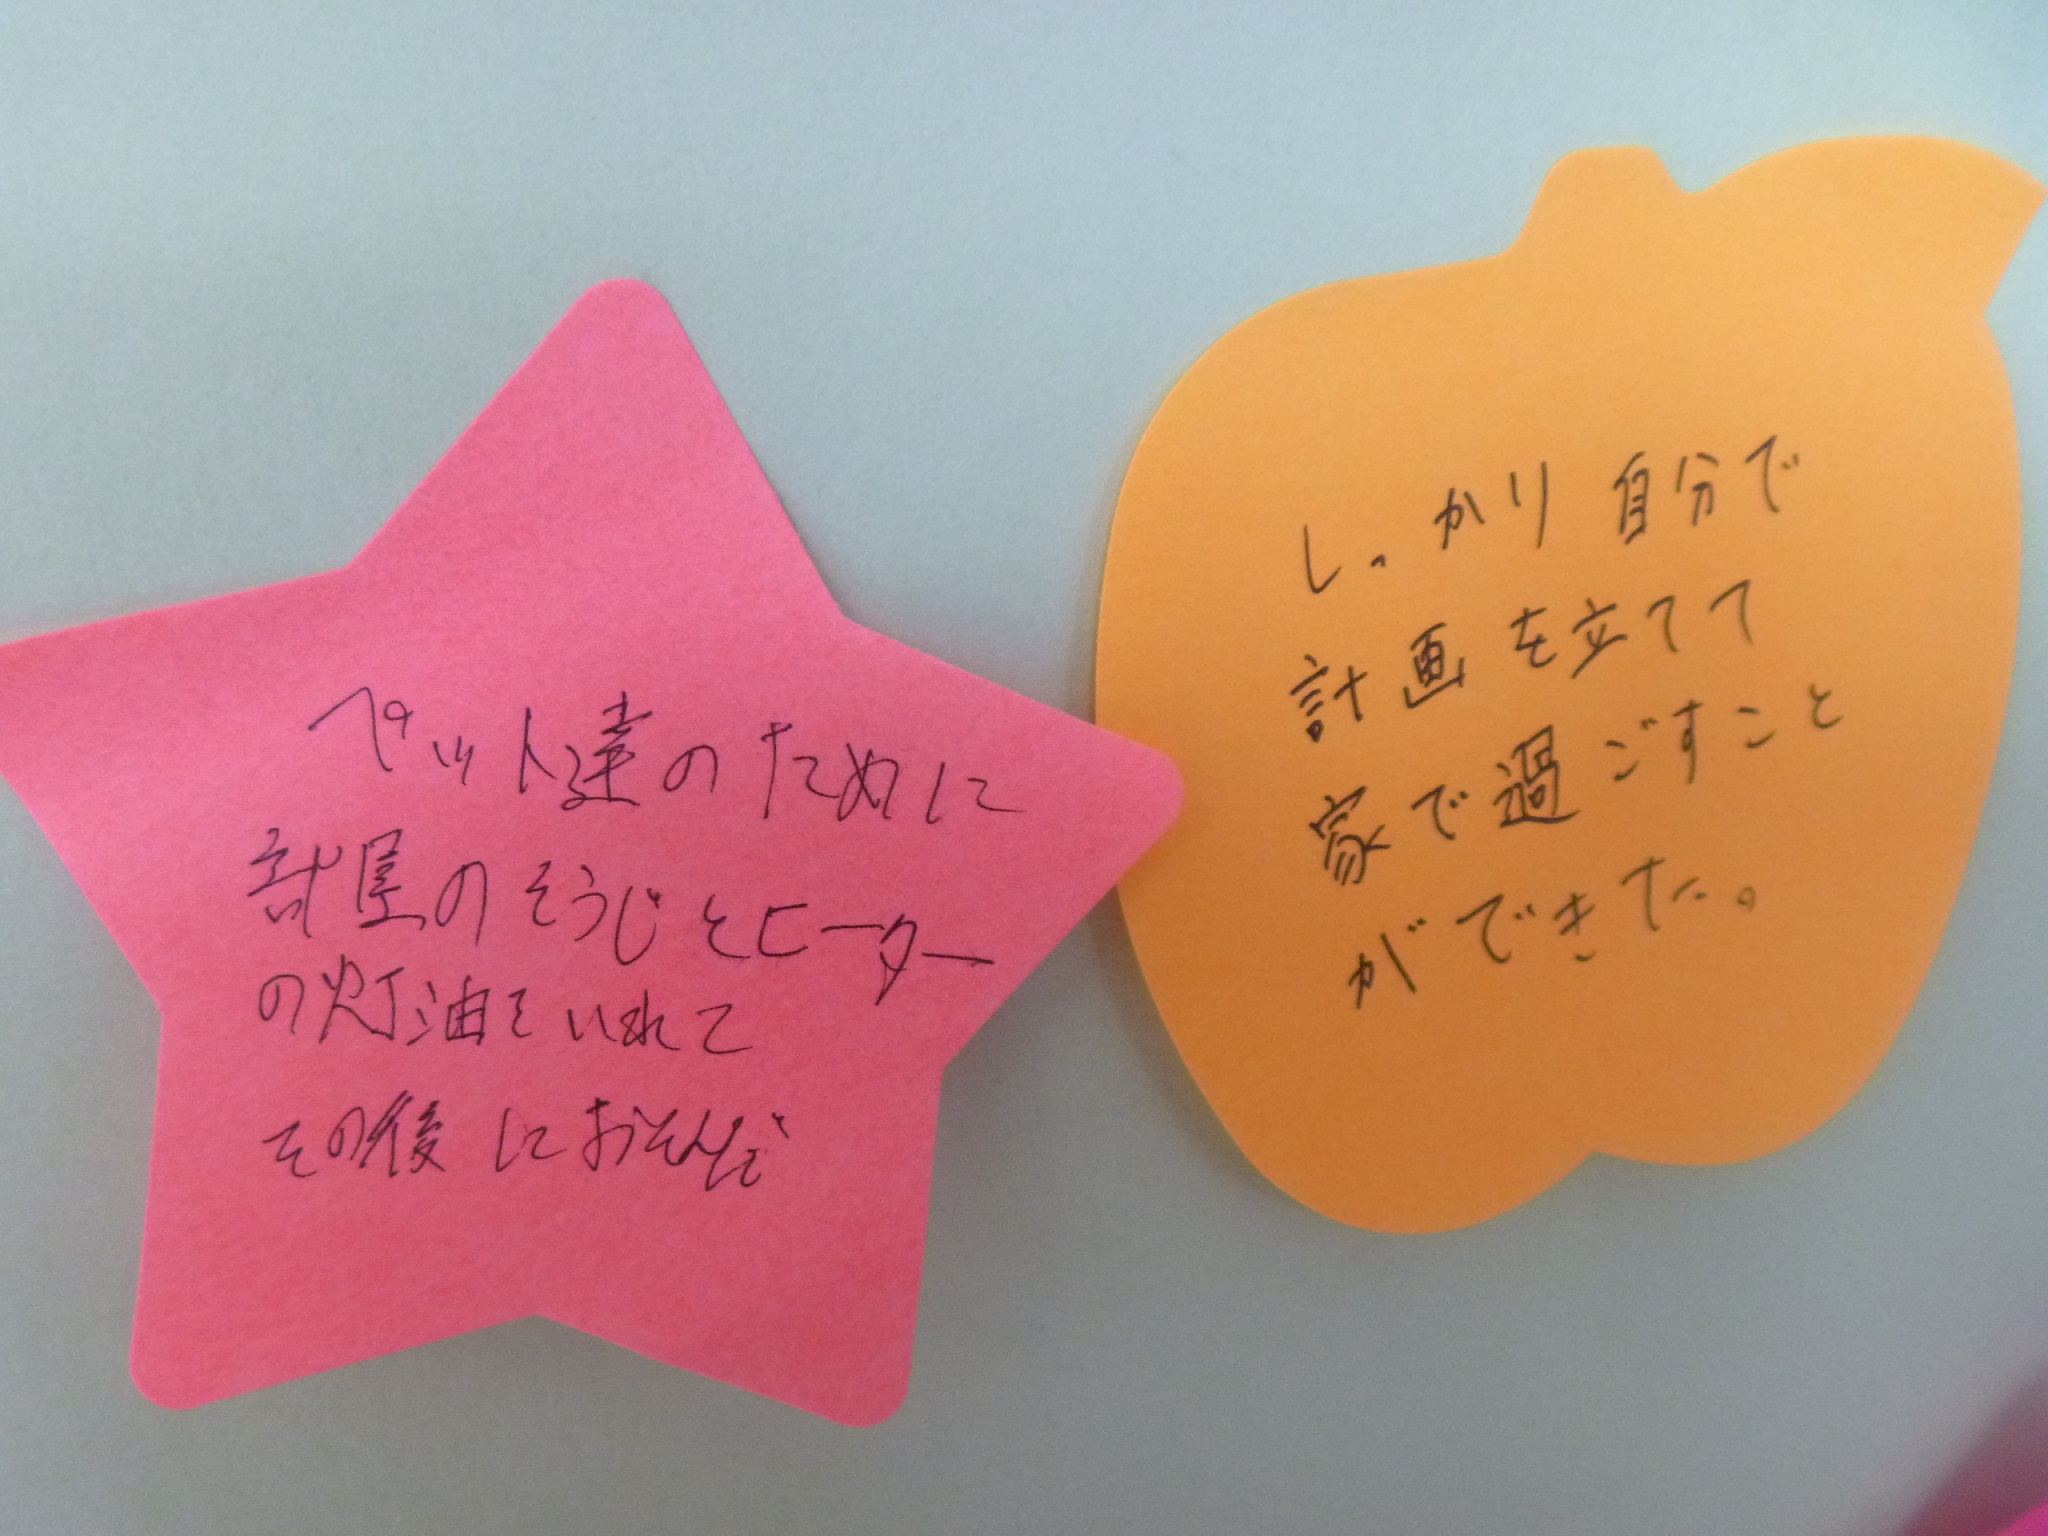 ペット達のために
部屋のそうじとヒーター
の灯油をいれて
その後に
しっかり自分で
計画を立てて
家で過ごすこと
ができた。